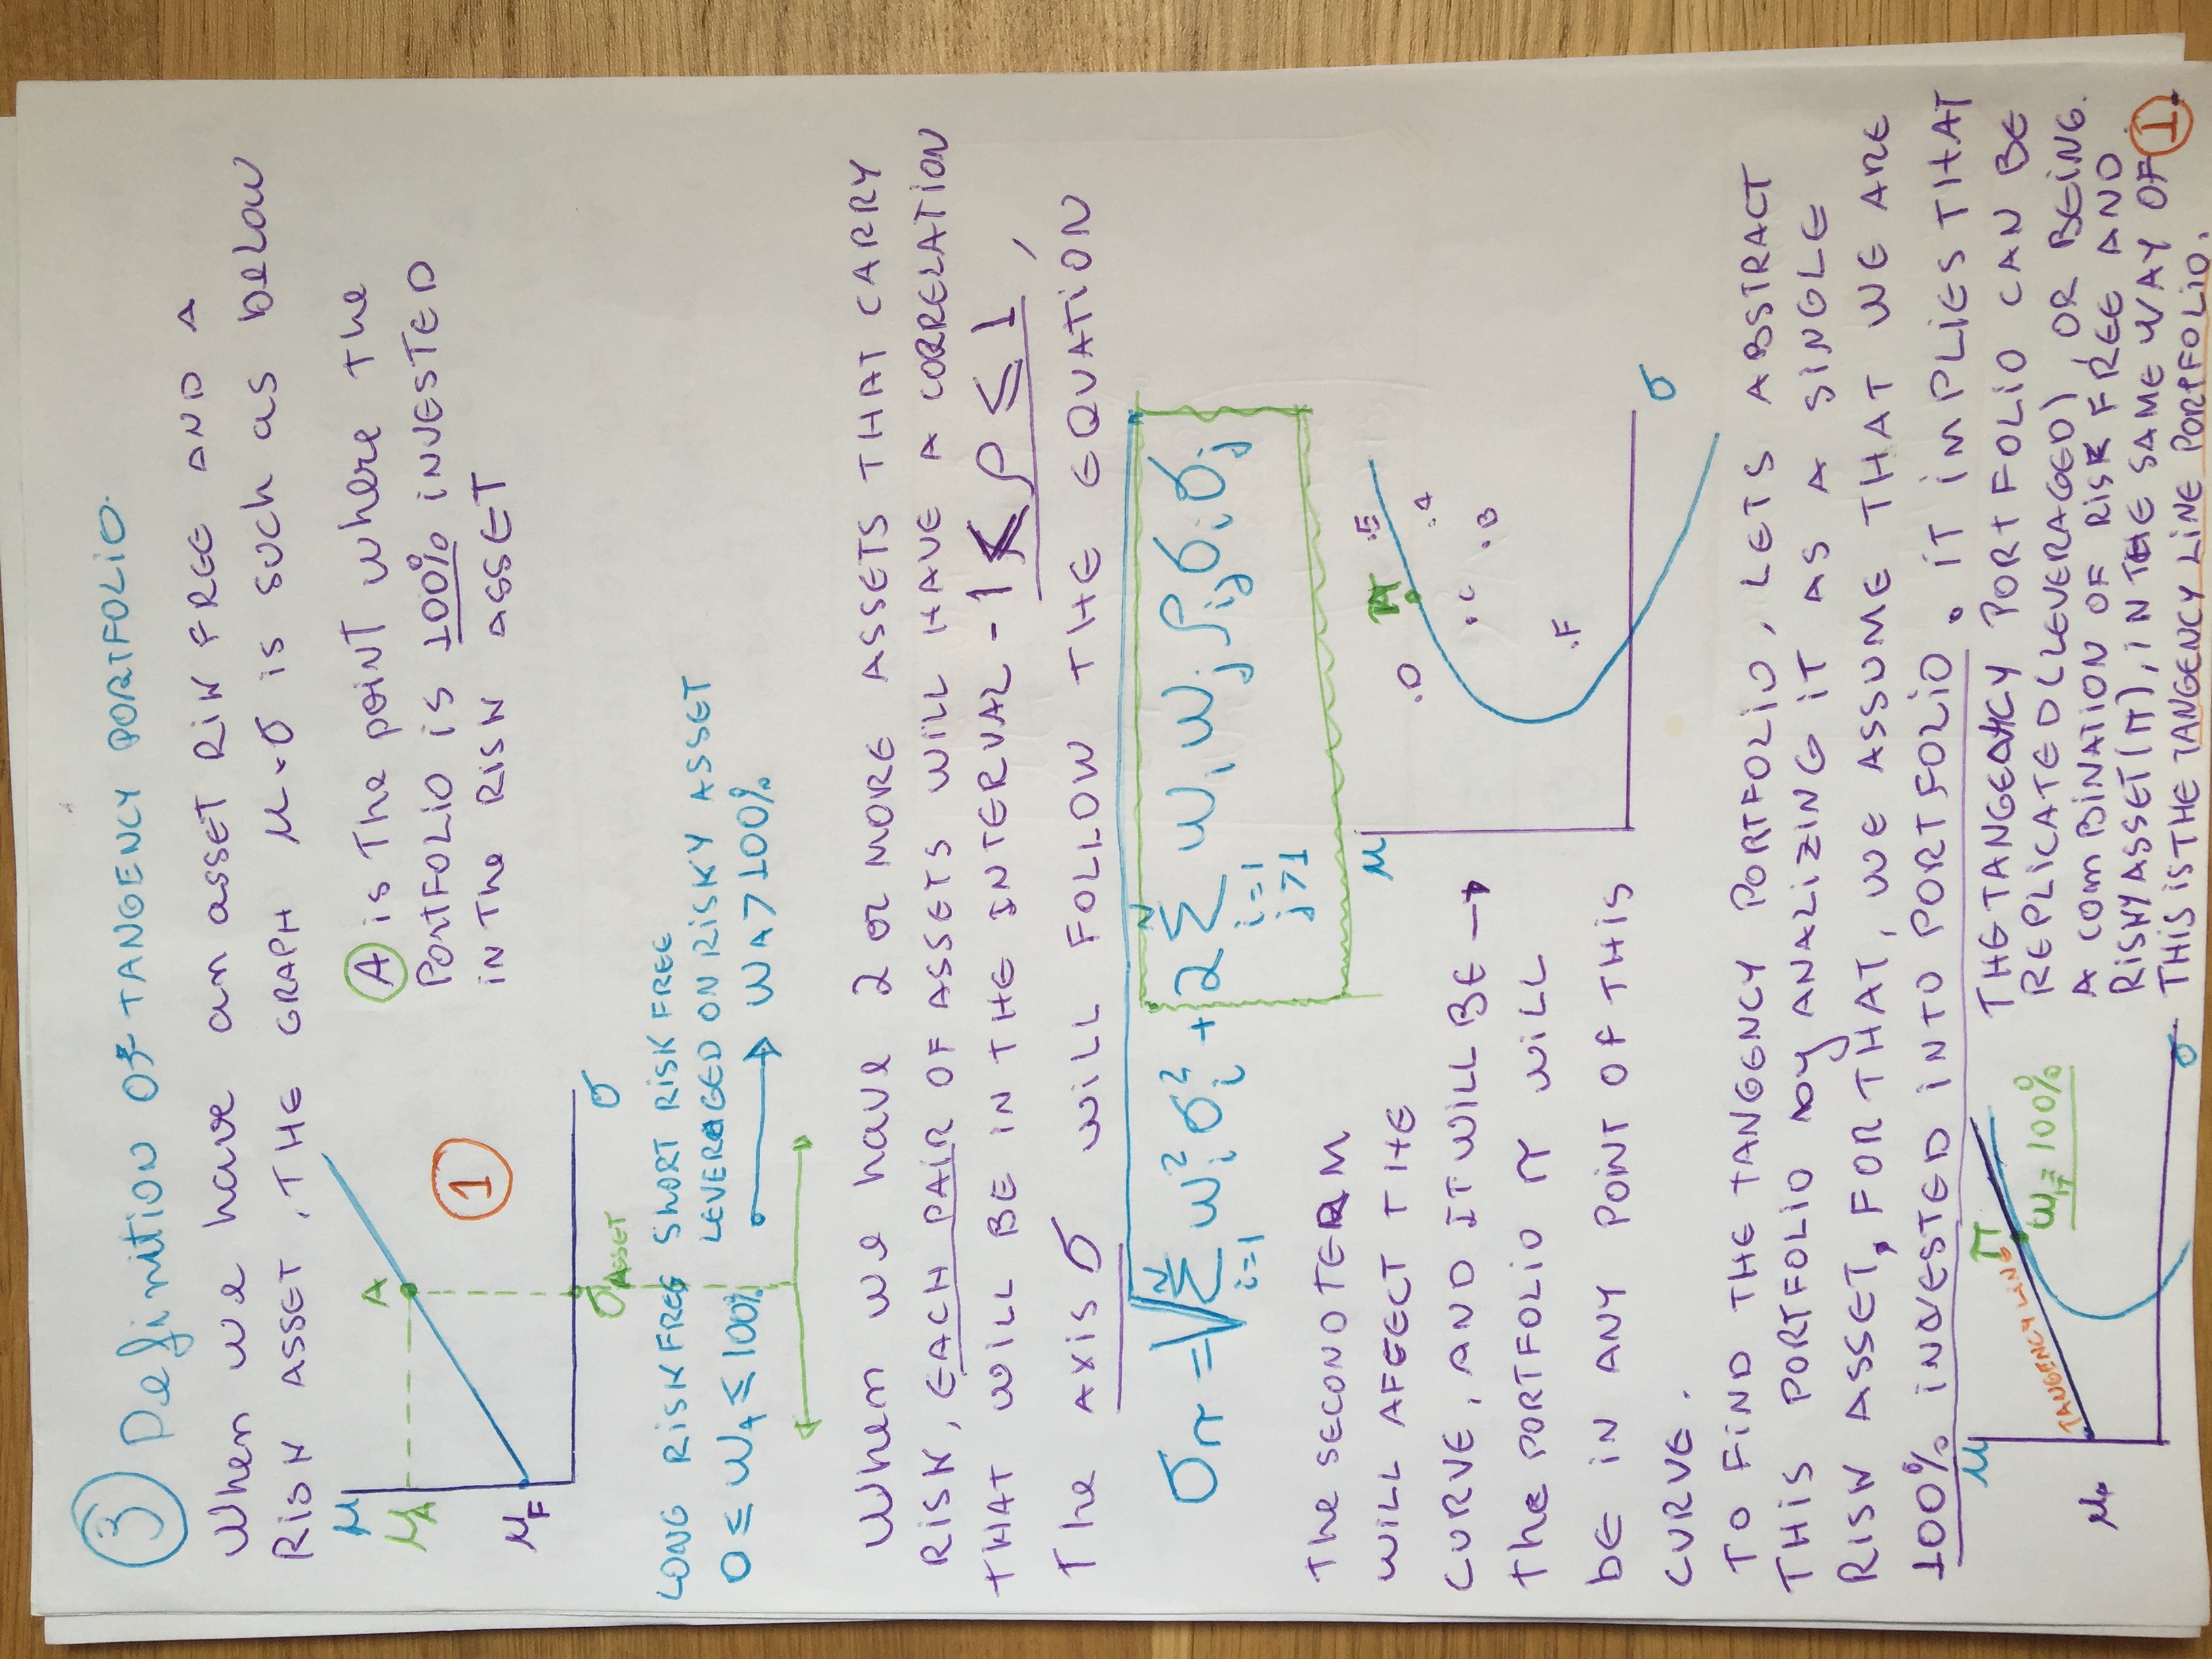 3 Definition OF TANGENCY PORTFOLIO.
When we have an asset RISK FREE AND A
RISK ASSET, THE GRAPH μ × σ is such as below
μ
A
μA
1
μF
σASSET
σ
A is The point where the
PORTFOLIO is 100% INVESTED
IN The RISK ASSET
LONG RISK FREE SHORT RISK FREE
LEVERAGED ON RISKY ASSET
0 ≤ WA ≤ 100% → WA > 100%
When we have 2 or MORE ASSETS THAT CARRY
RISK, EACH PAIR OF ASSETS WILL HAVE A CORRELATION
THAT WILL BE IN THE INTERVAL -1 ≤ ρ ≤ 1,
The AXIS σ WILL FOLLOW THE EQUATION
σπ = √ N Σ i=1 wi² σi² + 2 N Σ i=1 j>1 wi wj ρij σi σj
The SECOND TERM
WILL AFFECT THE
CURVE, AND IT WILL BE →
the PORTFOLIO π WILL
bE IN ANY POINT OF THIS
CURVE.
μ
.D
π
.E
.A
.C
.B
.F
σ
TO FIND THE TANGENCY PORTFOLIO, LETS ABSTRACT
THIS PORTFOLIO by ANALIZING IT AS A SINGLE
RISK ASSET, FOR THAT, WE ASSUME THAT WE ARE
100% INVESTED INTO PORTFOLIO. IT IMPLIES THAT
THE TANGENCY PORTFOLIO CAN BE
REPLICATED (LEVERAGED), OR BEING
A COMBINATION OF RISK FREE AND
RISKY ASSET (π), IN THE SAME WAY OF 1.
THIS IS THE TANGENCY LINE PORTFOLIO.
μ
π
TANGENCY LINE
Wπ = 100%
μF
σ